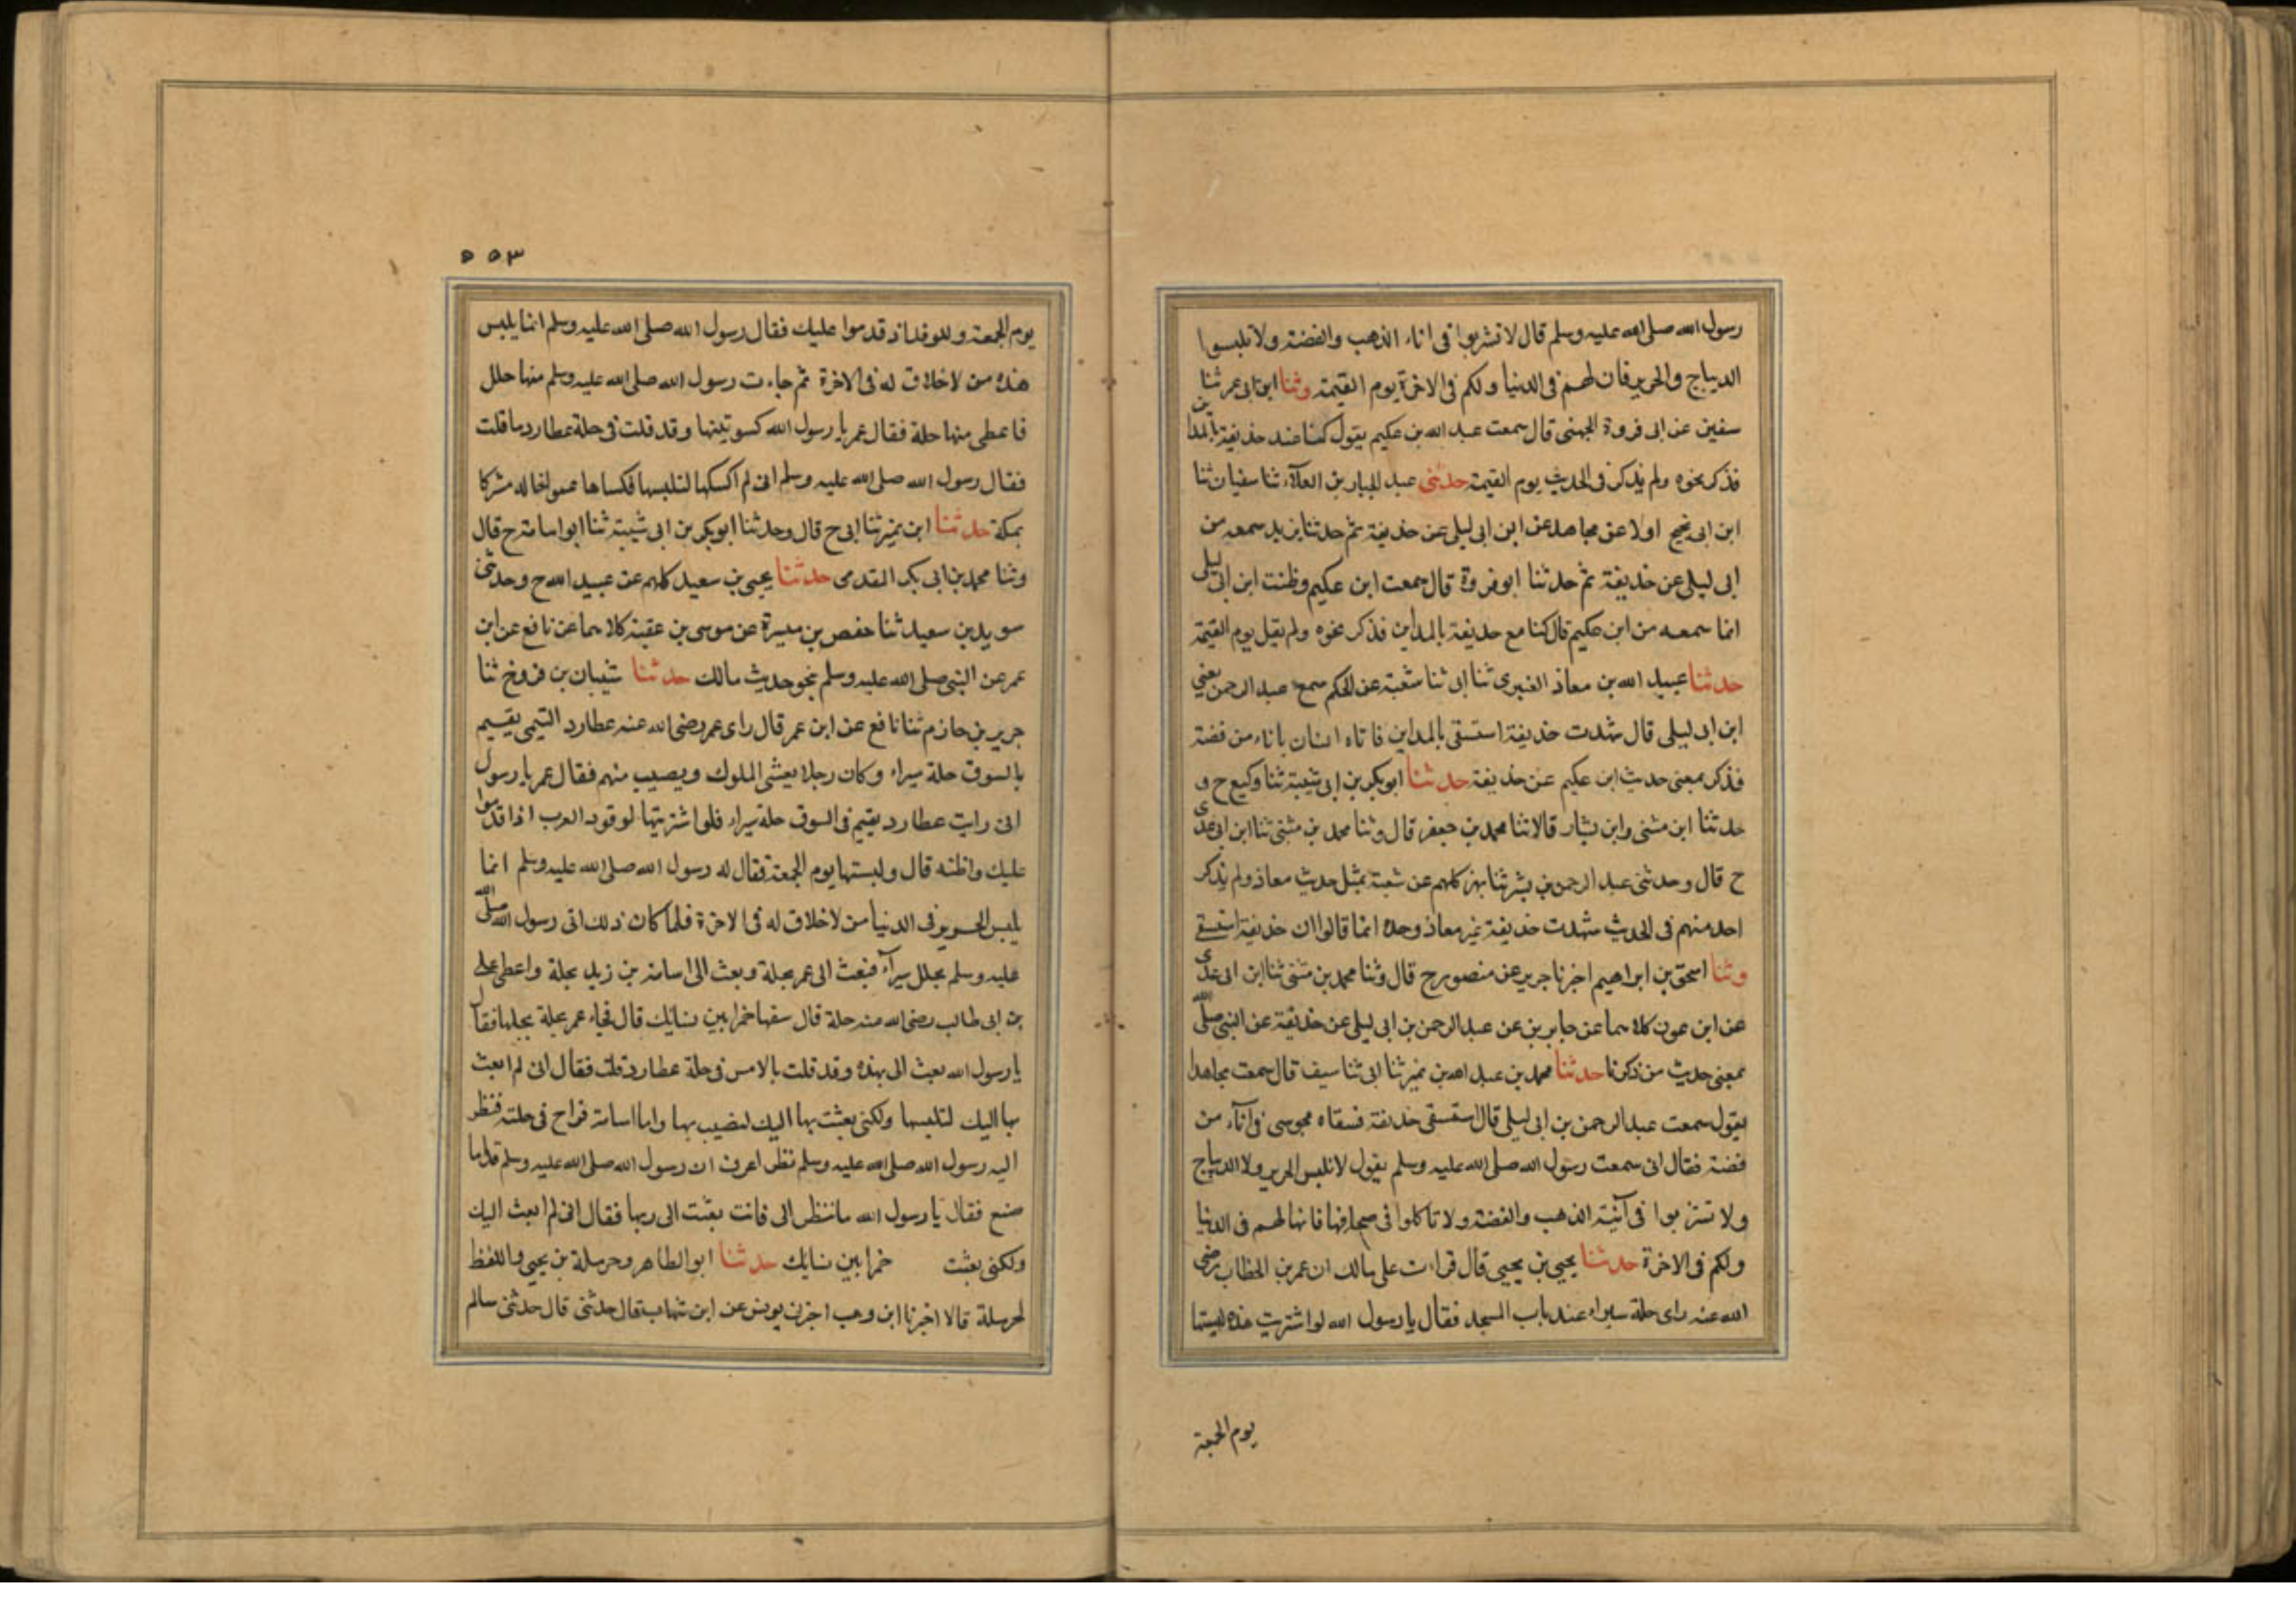 رسول الله صلى الله عليه وسلم قال لا تشربوا فى اناء الذهب والفضة ولا تلبسوا
الديباج والحرير فان لهم فى الدنيا ولكم فى الاخرة يوم القيمة وثنا ابن ابى عمر ثنا
سفين عن ابى فروة الجهنى قال سمعت عبد الله بن عكيم يقول كنا عند حذيفة بالمداين
فذكر نحوه ولم يذكر فى الحديث يوم القيمة حدثنى عبد الجبار بن العلآء ثنا سفيان ثنا
ابن ابى نجيح اولا عن مجاهد عن ابن ابى ليلى عن حذيفة ثم حدثنا يزيد سمعه من
ابى ليلى عن حذيفة ثم حدثنا ابو فروة قال سمعت ابن عكيم وظننت ابن ابى ليلى
انما سمعه من ابن عكيم قال كنا مع حذيفة بالمداين فذكر نحوه ولم يقل يوم القيمة
حدثنا عبيد الله بن معاذ العنبرى ثنا ابى ثنا شعبة عن الحكم سمع عبد الرحمن يعني
ابن ابى ليلى قال شهدت حذيفة استسقى بالمداين فاتاه انسان باناء من فضة
فذكر بمعنى حديث ابن عكيم عن حذيفة حدثنا ابو بكر بن ابى شيبة ثنا وكيع ح و
حدثنا ابن مثنى وابن بشار قالا ثنا محمد بن جعفر قال وثنا محمد بن مثنى ثنا ابن ابى عدى
ح قال وحدثنى عبد الرحمن بن بشر ثنا بهز كلهم عن شعبة بمثل حديث معاذ ولم يذكر
احد منهم فى الحديث شهدت حذيفة غير معاذ وحده انما قالوا ان حذيفة استسقى
وثنا اسحق بن ابراهيم اخبرنا جرير عن منصور ح قال وثنا محمد بن مثنى ثنا ابن ابى عدى
عن ابن عون كلاهما عن جابر بن عن عبد الرحمن بن ابى ليلى عن حذيفة عن النبى صلى الله
بمعنى حديث من ذكرنا حدثنا محمد بن عبد الله بن نمير ثنا ابى ثنا سيف قال سمعت مجاهدا
يقول سمعت عبد الرحمن بن ابى ليلى قال استسقى حذيفة فسقاه مجوسى فى انآء من
فضة فقال انى سمعت رسول الله صلى الله عليه وسلم يقول لا تلبس الحرير ولا الديباج
ولا تشربوا فى آنية الذهب والفضة ولا تاكلوا فى صحافها فانها لهم فى الدنيا
ولكم فى الاخرة حدثنا يحيى بن يحيى قال قرات على مالك ان عمر بن الخطاب رضى
الله عنه راى حلة سيراء عند باب المسجد فقال يا رسول الله لو اشتريت هذه لبستها
يوم الجمعة
٥٥٣
يوم الجمعة وللوفد اذ قدموا عليك فقال رسول الله صلى الله عليه وسلم انما يلبس
هذه من لا خلاق له فى الاخرة ثم جاءت رسول الله صلى الله عليه وسلم منها حلل
فاعطى منها حلة فقال عمر يا رسول الله كسوتنيها وقد قلت فى حلة عطارد ما قلت
فقال رسول الله صلى الله عليه وسلم انى لم اكسكها لتلبسها فكساها عمر اخا له مشركا
بمكة حدثنا ابن نمير ثنا ابى ح قال وحدثنا ابو بكر بن ابى شيبة ثنا ابو اسامة ح قال
وثنا محمد بن ابى بكر المقدمى حدثنا يحيى بن سعيد كلهم عن عبيد الله ح وحدثنى
سويد بن سعيد ثنا حفص بن ميسرة عن موسى بن عقبة كلاهما عن نافع عن ابن
عمر عن النبى صلى الله عليه وسلم نحو حديث مالك حدثنا شيبان بن فروخ ثنا
جرير بن حازم ثنا نافع عن ابن عمر قال راى عمر رضى الله عنه عطارد التيمى يقيم
بالسوق حلة سيراء وكان رجلا يغشى الملوك ويصيب منهم فقال عمر يا رسول
انى رايت عطارد يقيم فى السوق حلة سيراء فلو اشتريتها لوفود العرب اذا قدموا
عليك واظنه قال ولبستها يوم الجمعة فقال له رسول الله صلى الله عليه وسلم انما
يلبس الحرير فى الدنيا من لا خلاق له فى الاخرة فلما كان ذلك اتى رسول الله صلى الله
عليه وسلم بحلل سيرآء فبعث الى عمر بحلة وبعث الى اسامة بن زيد بحلة واعطى على
بن ابى طالب رضى الله عنه حلة قال شقها خمرا بين نسايك قال فجاء عمر بحلة يحملها فقال
يا رسول الله بعثت الى بهذه وقد قلت بالامس فى حلة عطارد قلت فقال انى لم ابعث
بها اليك لتلبسها ولكنى بعثت بها اليك لتصيب بها واما اسامة فراح فى حلته فنظر
اليه رسول الله صلى الله عليه وسلم نظر اعرف ان رسول الله صلى الله عليه وسلم قد ما
صنع فقال يا رسول الله ما تنظر الى فانت بعثت الى بها فقال انى لم ابعث اليك
ولكنى بعثت خمرا بين نسايك حدثنا ابو الطاهر وحرملة بن يحيى واللفظ
لحرملة قالا اخبرنا ابن وهب اخبرنى يونس عن ابن شهاب قال حدثنى قال حدثنى سالم